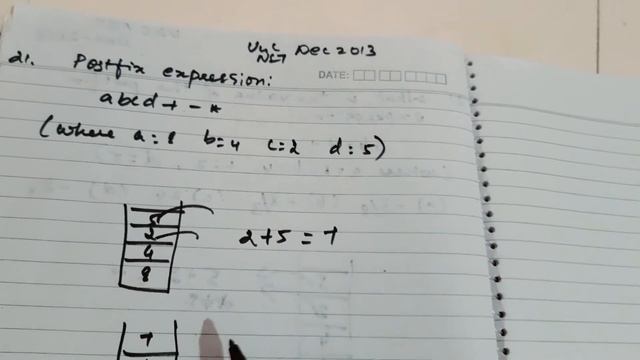 UGC NET Dec 2013
21. Postfix expression:
DATE:
abcd + - *
(where a=8 b=4 c=2 d=5)
5
2
4
8
2+5 = 7
7